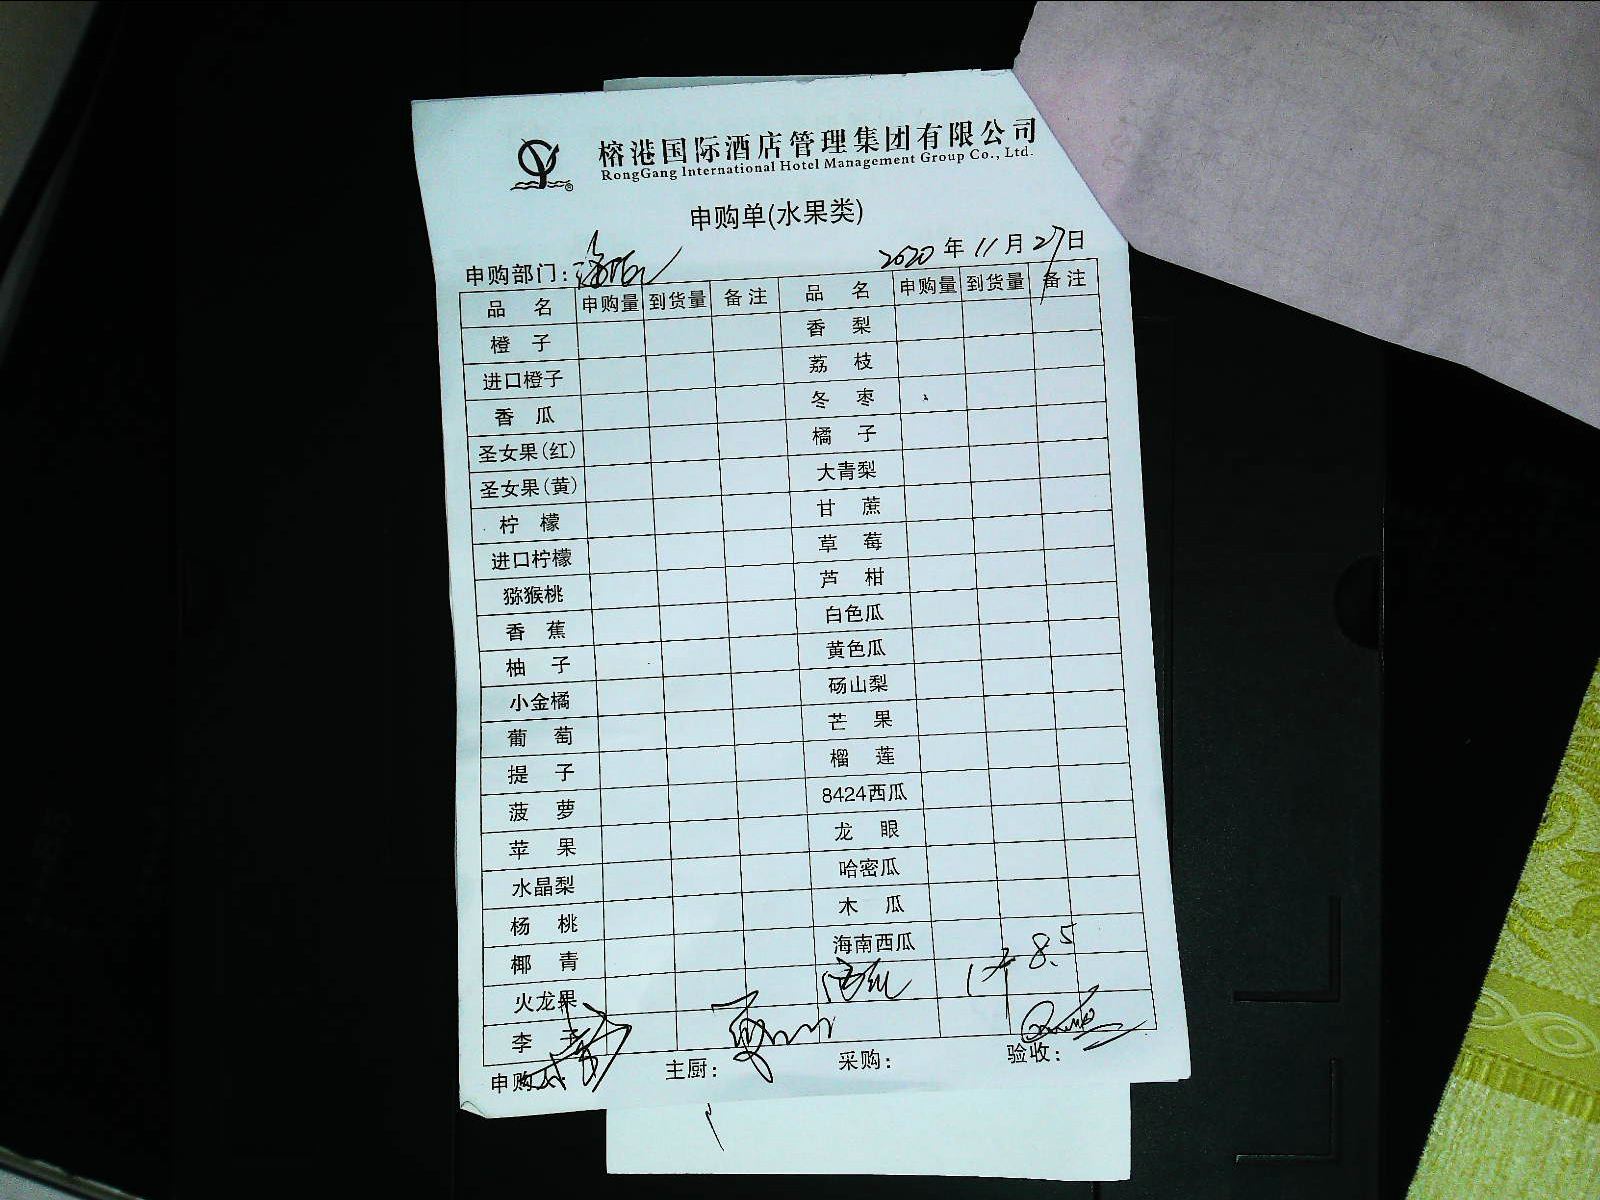 榕港国际酒店管理集团有限公司
RongGang International Hotel Management Group Co., Ltd.
申购单(水果类)
申购部门: 2020年11月27日
品名 申购量 到货量 备注 品名 申购量 到货量 备注
橙子 香梨
进口橙子 荔枝
香瓜 冬枣
圣女果(红) 橘子
圣女果(黄) 大青梨
柠檬 甘蔗
进口柠檬 草莓
猕猴桃 芦柑
香蕉 白色瓜
柚子 黄色瓜
小金橘 砀山梨
葡萄 芒果
提子 榴莲
菠萝 8424西瓜
苹果 龙眼
水晶梨 哈密瓜
杨桃 木瓜
椰青 海南西瓜 8.5
火龙果
李子
申购人: 主厨: 采购: 验收: